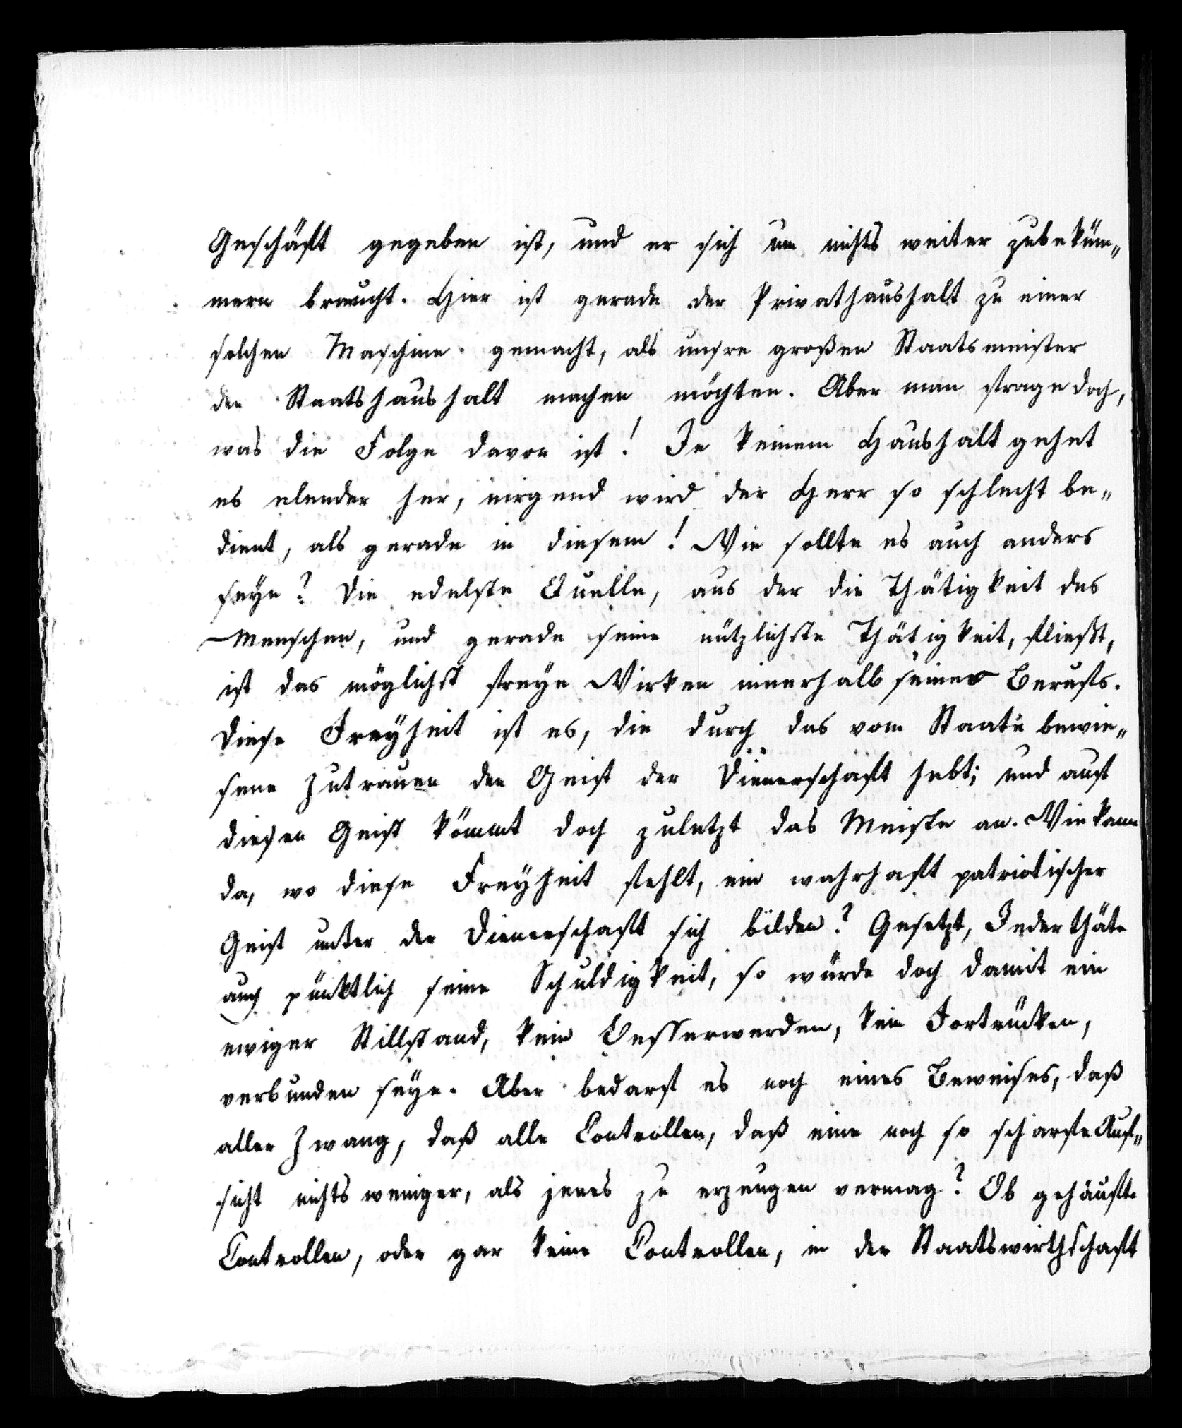 Geschäft gegeben ist, und er sich um nichts weiter zubeküm„
mern braucht. Hier ist gerade der Privathaushalt zu einer
solchen Maschine gemacht, als unsre großen Staatsmeister
den Staatshaushalt machen möchten. Aber man frage doch,
was die Folge davon ist! In keinem Haushalt gehet
es elender her, nirgend wird der Herr so schlecht be„
dient, als gerade in diesem! Wie sollte es auch anders
seyn? Die edelste Quelle, aus der die Thätigkeit des
Menschen, und gerade seine nützlichste Thätigkeit, fließt,
ist das möglichst freye Wirken innerhalb seines Berufs.
Diese Freyheit ist es, die durch das vom Staate bewie„
sene Zutrauen den Geist der Dienerschaft hebt; und auf
diesen Geist kömmt doch zuletzt das Meiste an. Wie kann
da, wo diese Freyheit fehlt, ein wahrhaft patriotischer
Geist unter der Dienerschaft sich bilden? Gesetzt, Jeder thäte
auch pünktlich seine Schuldigkeit, so würde doch damit ein
ewiger Stillstand, kein Besserwerden, kein Fortrücken,
verbunden seyn. Aber bedarf es noch eines Beweises, daß
aller Zwang, daß alle Controllen, daß eine noch so scharfe Auf„
sicht nichts weniger, als jenes zu erzeugen vermag? Ob gehäufte
Controllen, oder gar keine Controllen, in der Staatswirthschaft